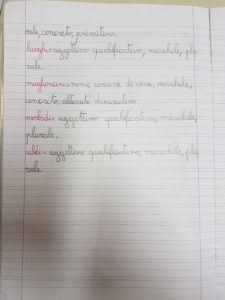 rale, concreto, primitivo.
lunghi= aggettivo qualificativo, maschile, plu
rale.
maglioncini= nome comune di cosa, maschile,
concreto, alterato diminutivo.
morbidi= aggettivo qualificativo, maschile,
plurale.
caldi= aggettivo qualificativo, maschile, plu
rale.